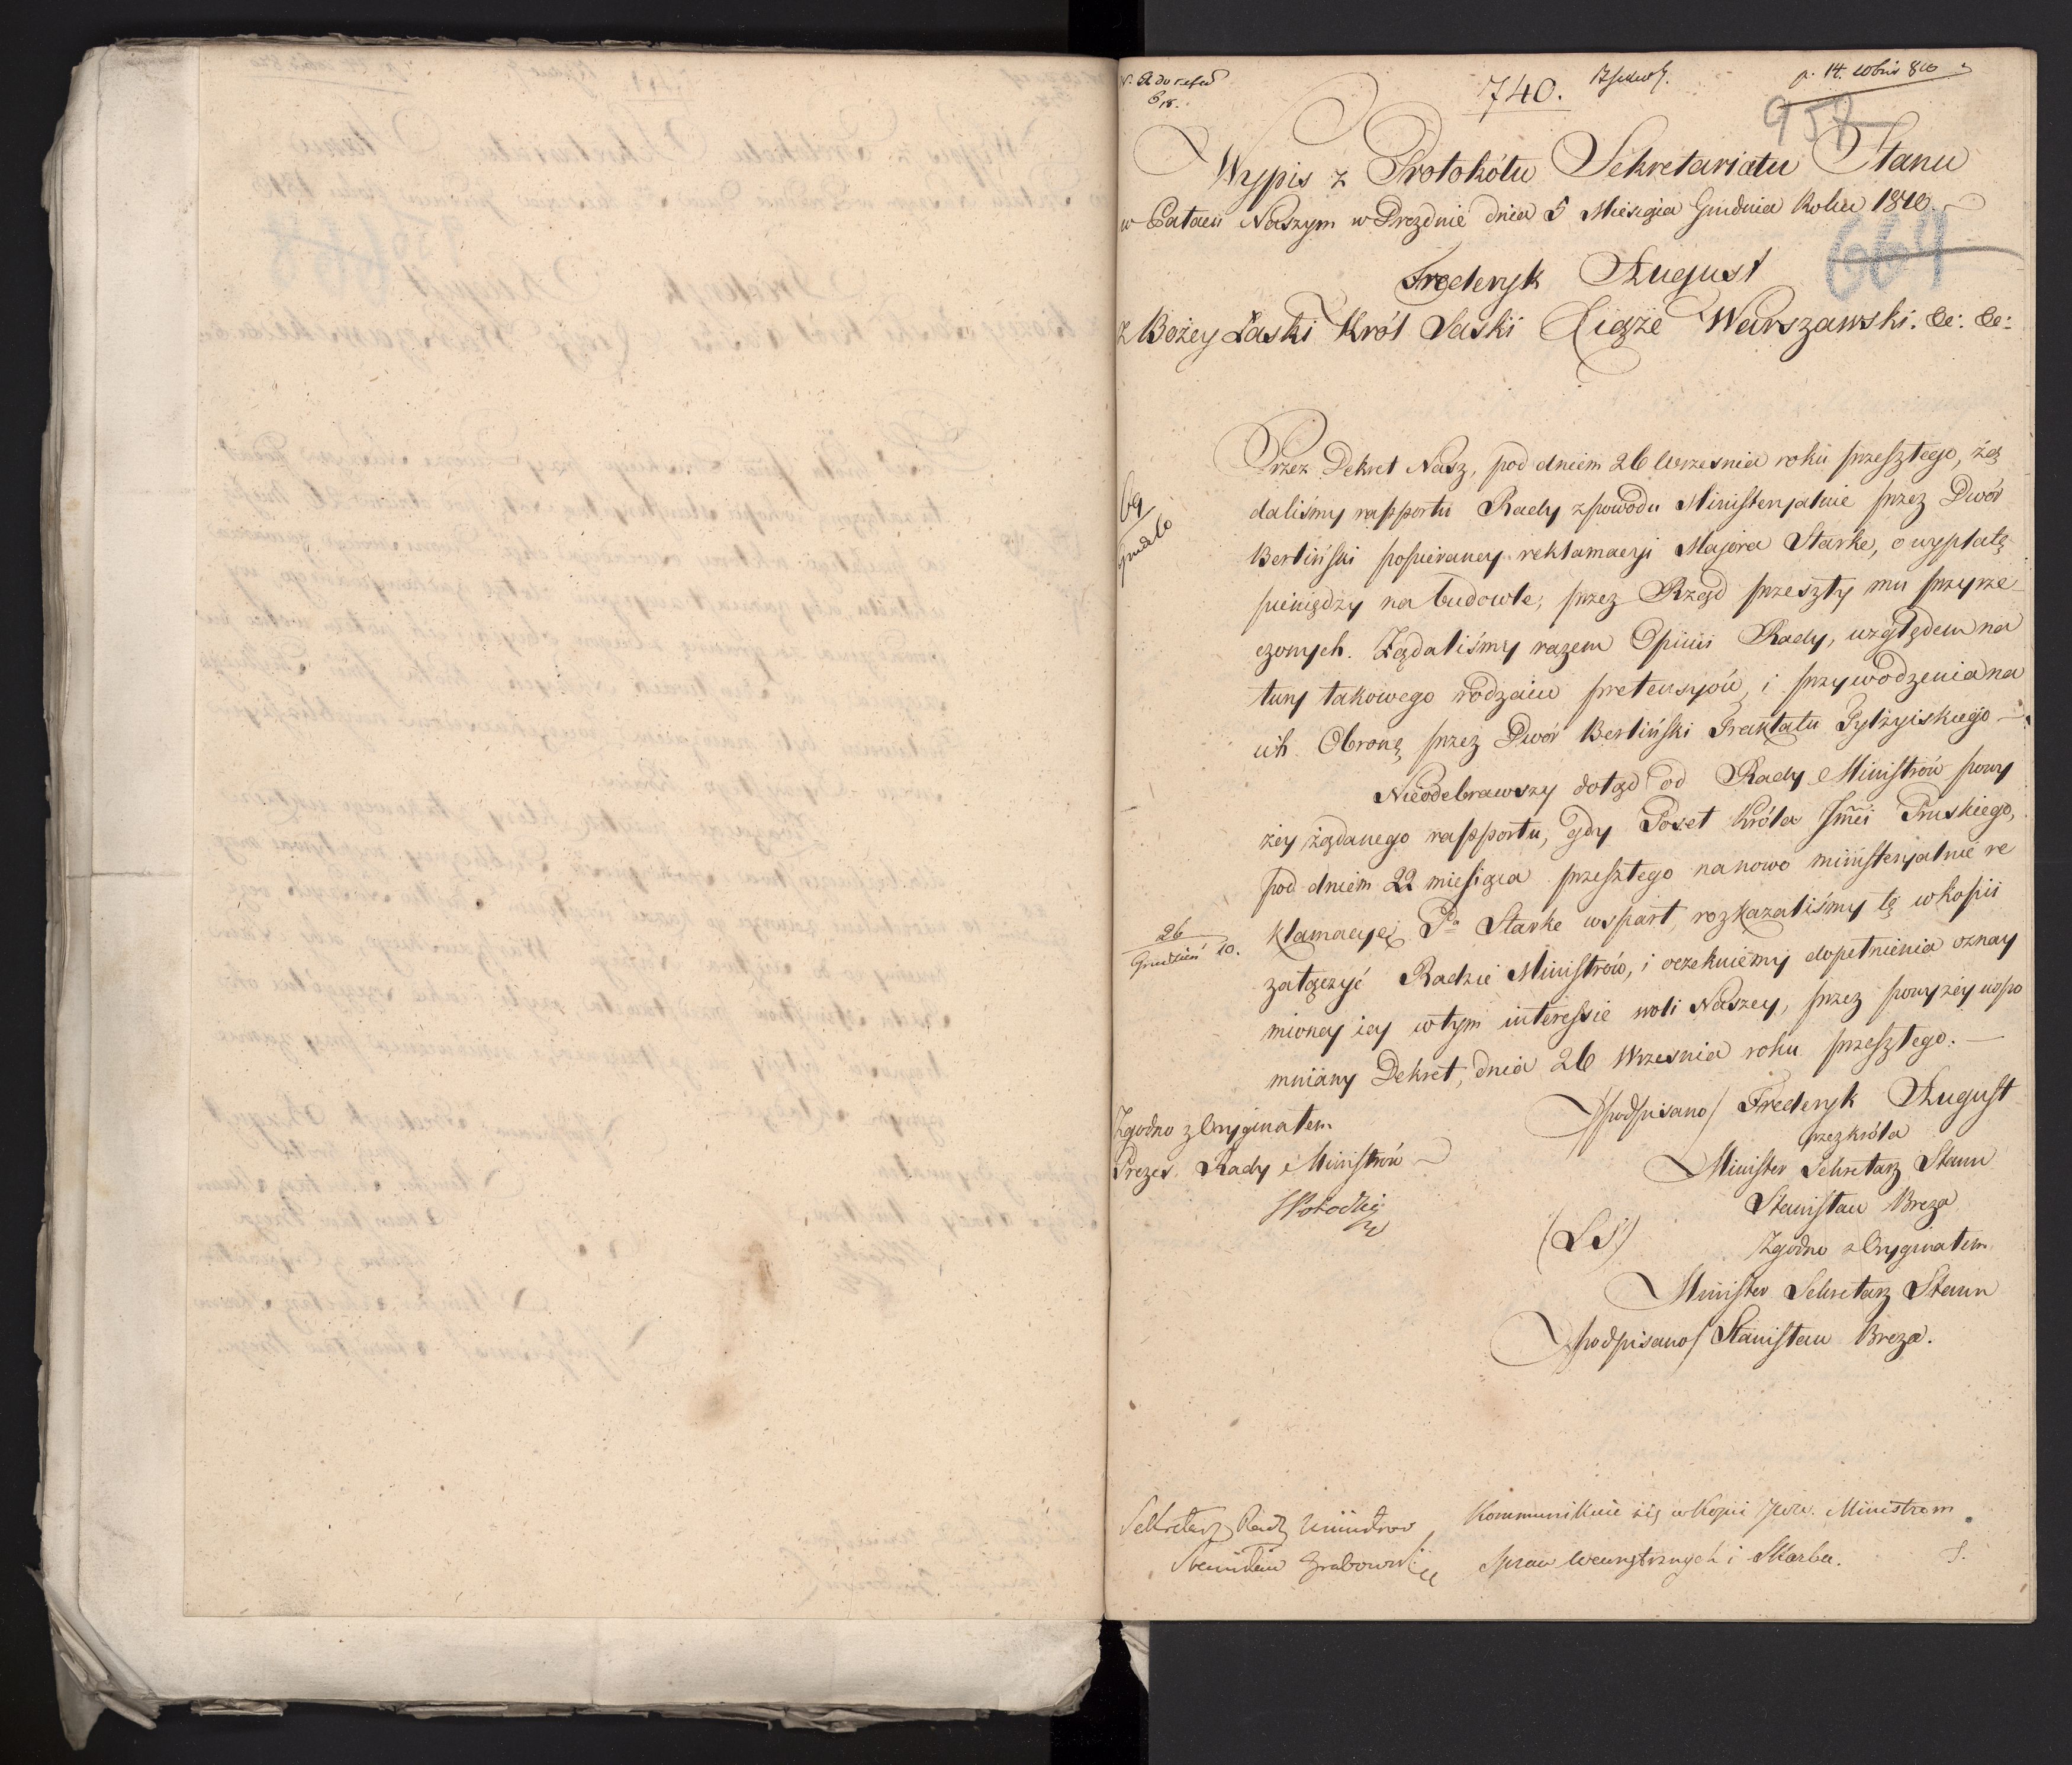 740.
p. 14. Xbris 810
957
Wypis z Protokółu Sekretariatu Stanu
w Pałacu Naszym w Dreznie dnia 5 Miesiąca Grudnia Roku 1810.
664
Frederyk August
z Bożey Łaski Król Saski Xiąże Warszawski. &c: &c:
Przez Dekret Nasz, pod dniem 26 Wrzesnia roku przeszłego, żą
daliśmy rapportu Rady z powodu Ministeryalnie przez Dwór
Berliński popieraney reklamacyi Majora Starke, o wypłatę
pieniędzy na budowle, przez Rząd przeszły mu przyrze
czonych. Żądaliśmy razem Opinii Rady, względem na
tury takowego rodzaiu pretensyów, i przywodzenia na
ich Obronę przez Dwór Berliński Traktatu Tylżyiskiego —
Nieodebrawszy dotąd od Rady Ministrów powy
żey żądanego rapportu, gdy Poseł Króla Jmci Pruskiego,
pod dniem 22 miesiąca przeszłego na nowo ministeryalnie re
klamacyę Pa Starke wsparł, rozkazaliśmy tę w kopii
26
Grudzień 10.
załączyć Radzie Ministrów, i oczekuiemy dopełnienia oznay
mioney iey w tym interessie woli Naszey, przez powyżey wspo
mniany Dekret, dnia 26 Wrzesnia roku przeszłego. —
/podpisano/ Frederyk August
przez króla
Minister Sekretarz Stanu
Stanisław Breza
(LS)
Zgodno z Oryginałem
Minister Sekretarz Stanu
/podpisano/ Stanisław Breza.
Zgodno z Oryginałem
Prezes Rady Ministrów
SPotocki
Sekretarz Rady Ministrów
Stanisław Grabowski
Kommunikuie się w Kopii JWW. Ministrom
Spraw Wewnętrznych i Skarbu.